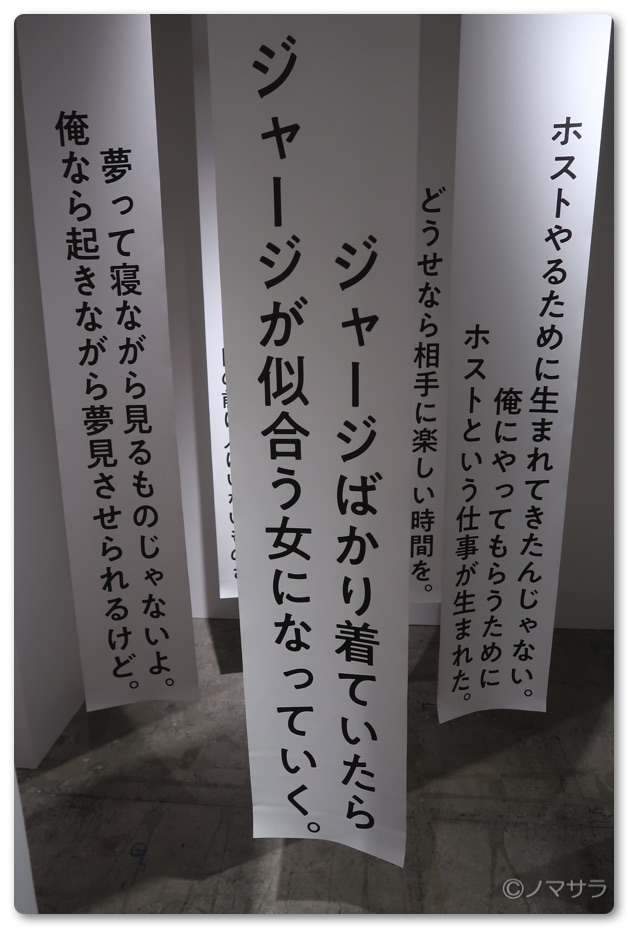 ホストやるために生まれてきたんじゃない。
俺にやってもらうために
ホストという仕事が生まれた。
どうせなら相手に楽しい時間を。
ジャージばかり着ていたら
ジャージが似合う女になっていく。
夢って寝ながら見るものじゃないよ。
俺なら起きながら夢見させられるけど。
©ノマサラ